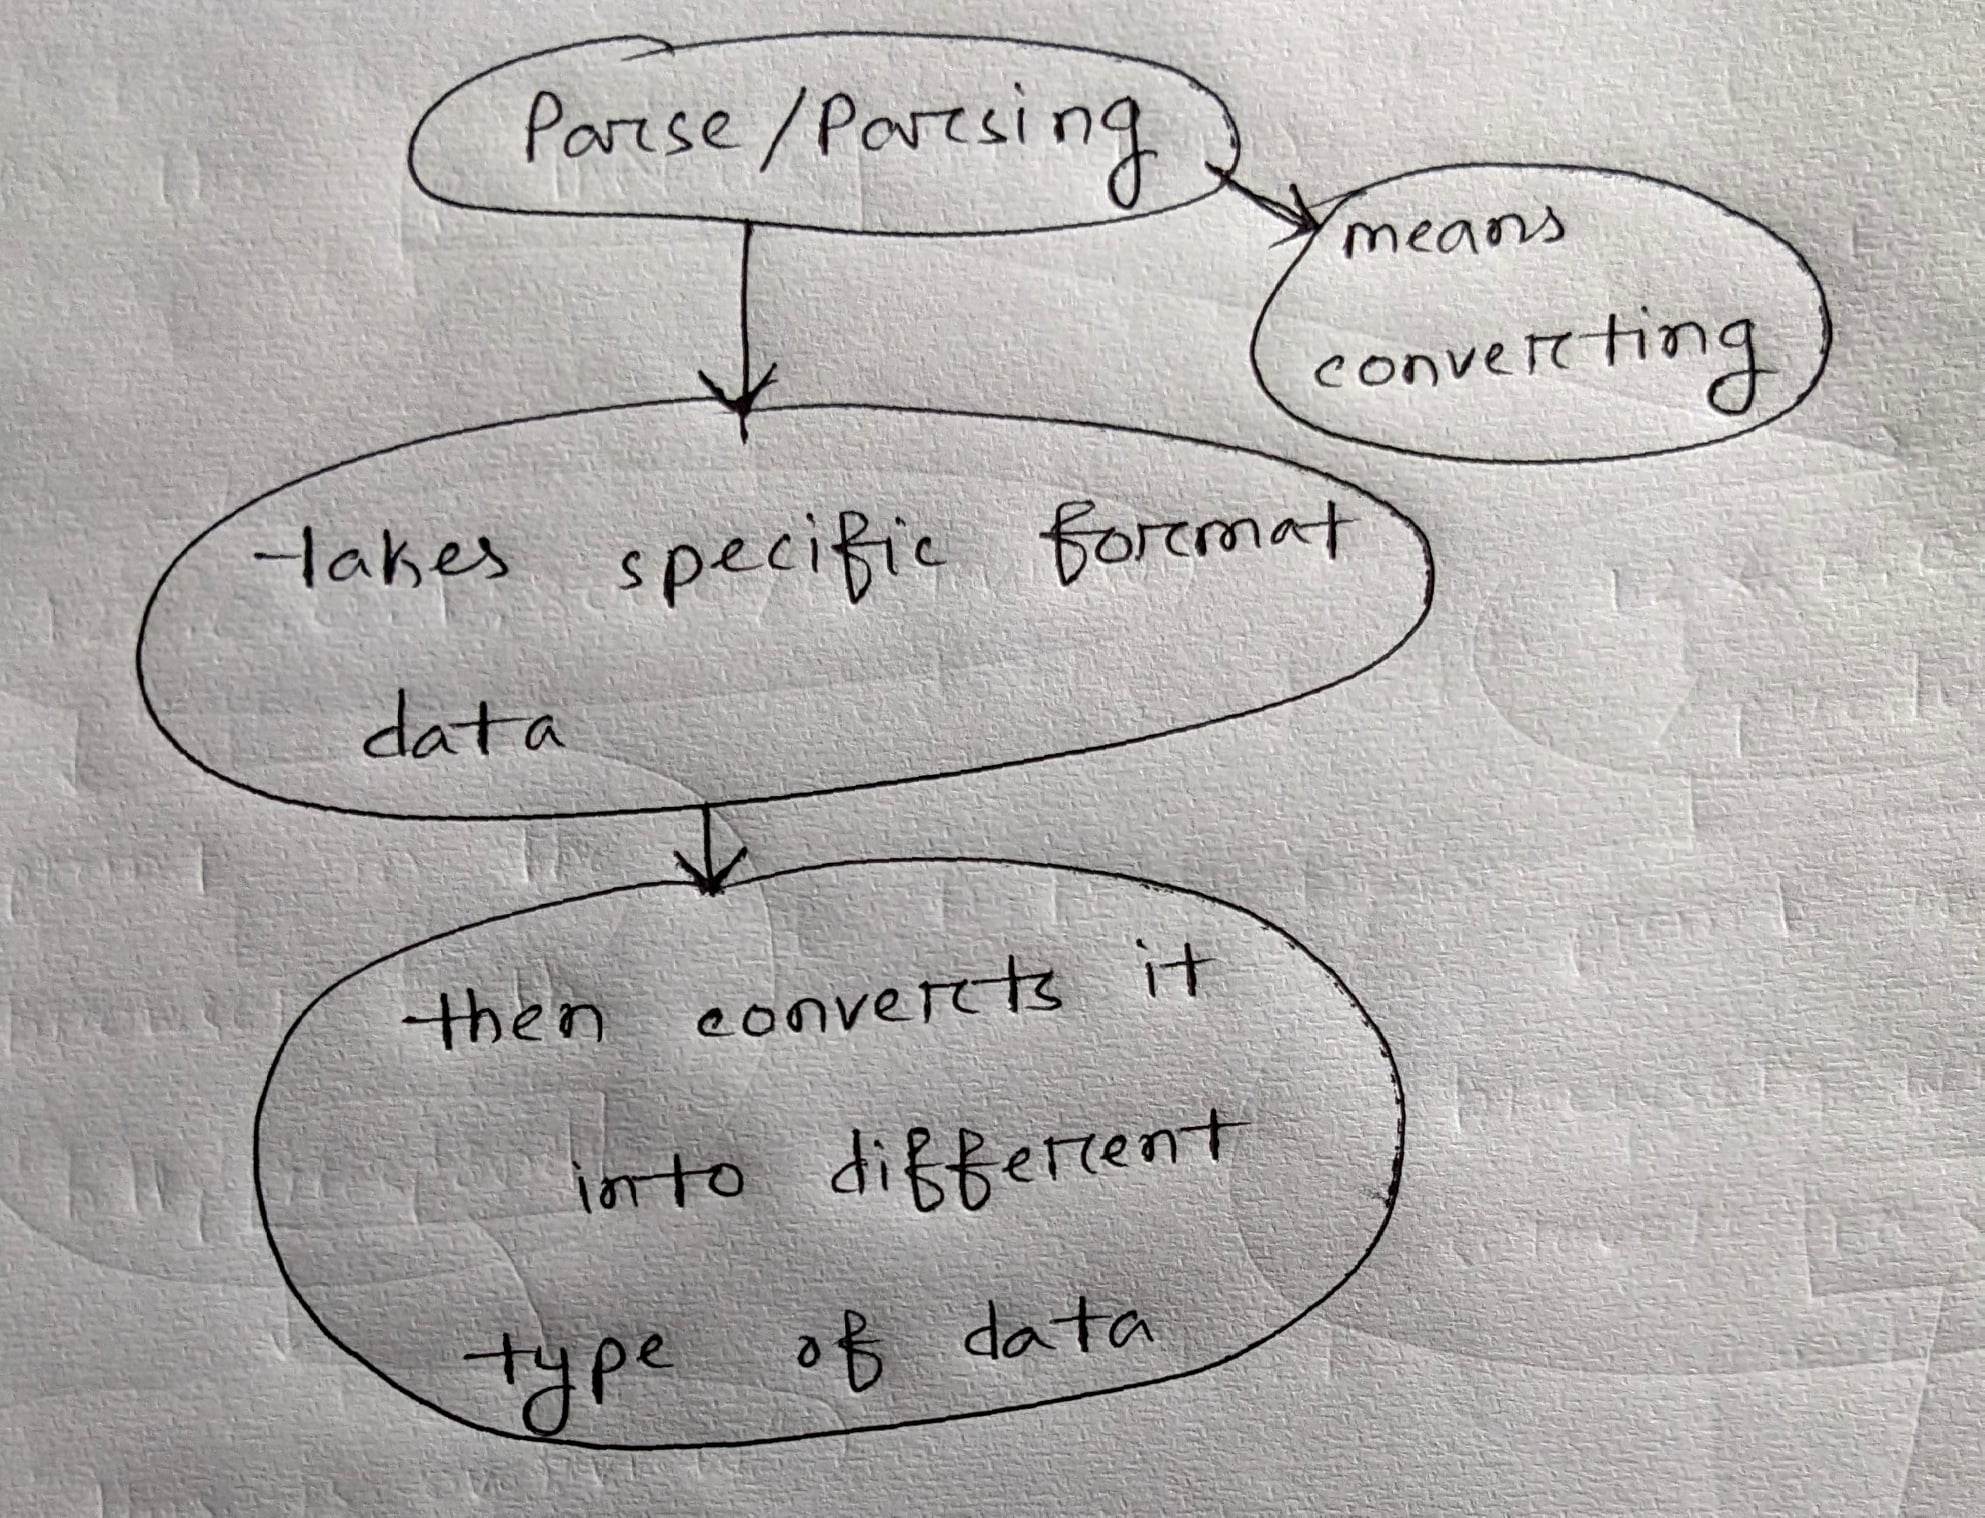 Parse/Parsing
means
converting
takes specific format
data
then converts it
into different
type of data